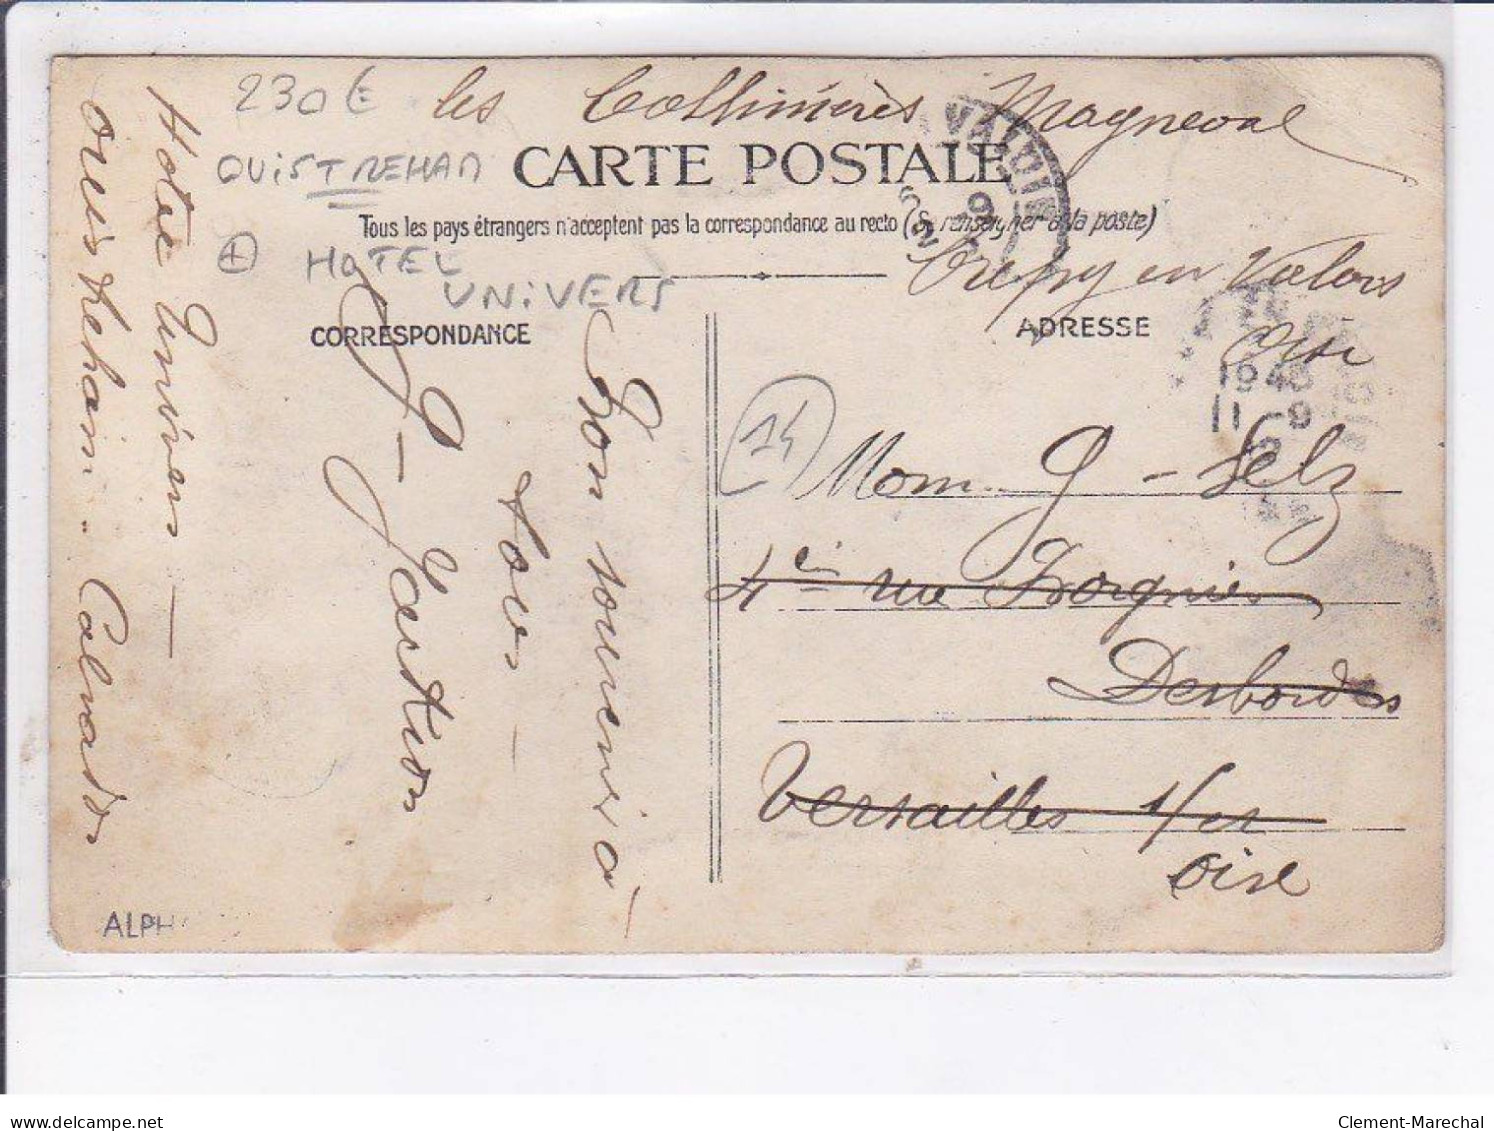 230€
les Collinières Magneval
OUISTREHAM
CARTE POSTALE
Tous les pays étrangers n'acceptent pas la correspondance au recto (Se renseigner à la poste)
HOTEL
UNIVERS
Crépy en Valois
Oise
CORRESPONDANCE
ADRESSE
1940
11-9
14
Hotel Univers
Ouistreham. Calvados
Bon souvenir à
tous
G-Jartion
Mom G-Selz
rue
Desbordes
Versailles
oise
ALPH
delcampe.net
Clement-Marechal